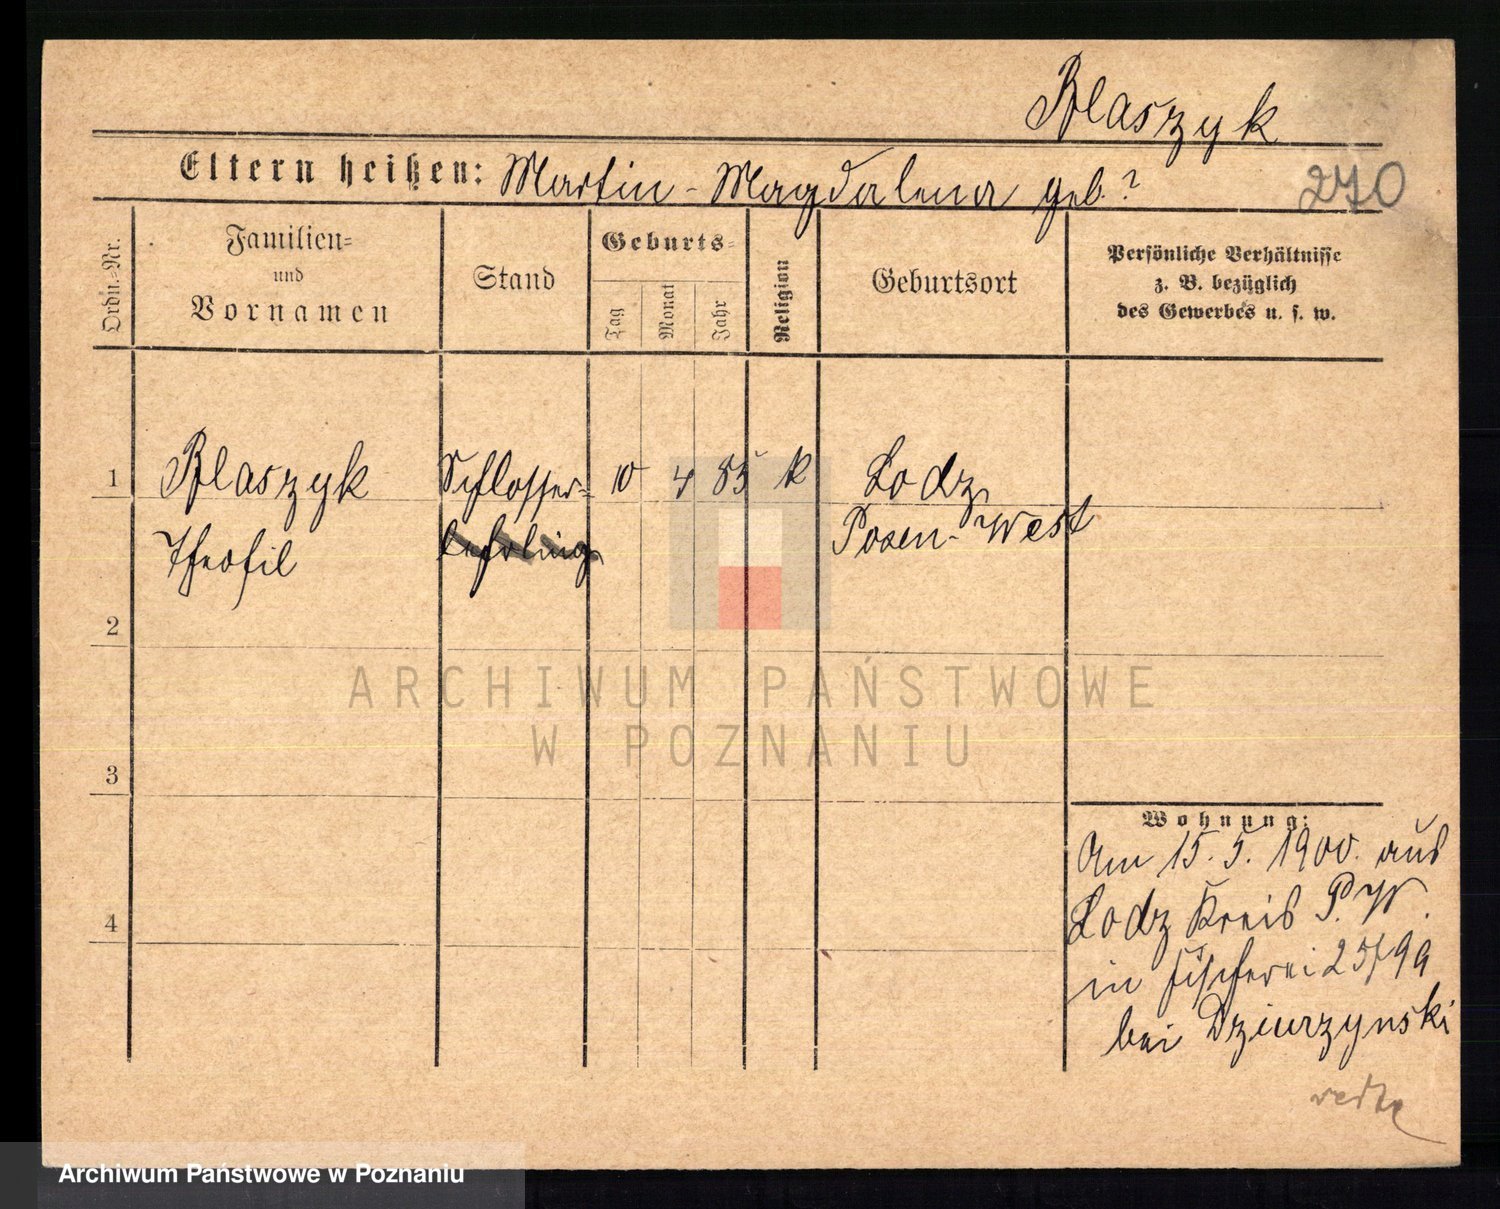 Blaszyk
Eltern heißen: Martin - Magdalena geb. ?
270
Ordn.=Nr.
Familien=
und
Vornamen
Stand
Geburts=
Tag
Monat
Jahr
Religion
Geburtsort
Persönliche Verhältnisse
z. B. bezüglich
des Gewerbes u. s. w.
1 Blaszyk Schlosser= 10 4 85 k Lodz
Theofil lehrling Posen-West
2
3
4
ARCHIWUM PAŃSTWOWE
W POZNANIU
Wohnung:
Am 15. 5. 1900. aus
Lodz Kreis P. W.
in Fischerei
bei Dziurzynski
Archiwum Państwowe w Poznaniu